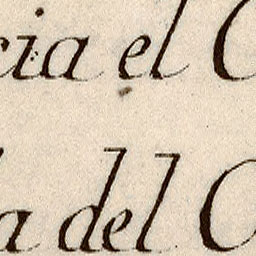 cia el C
a del C